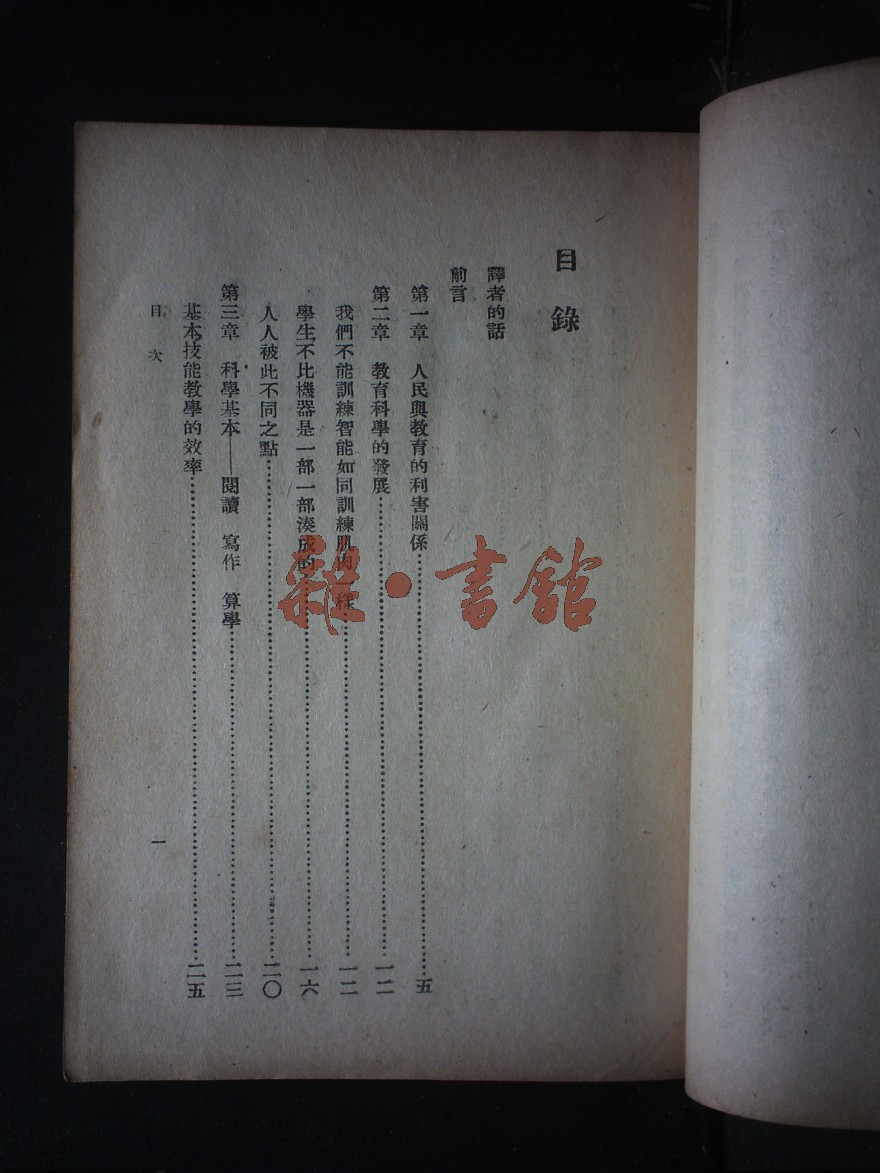 目錄
譯者的話
前言
第一章 人民與教育的利害關係……五
第二章 教育科學的發展……一二
我們不能訓練智能如同訓練肌肉一樣……一二
學生不比機器是一部一部湊成的……一六
人人彼此不同之點……二〇
第三章 科學基本——閱讀 寫作 算學……二三
基本技能教學的效率……二五
目次 一
雜·書館